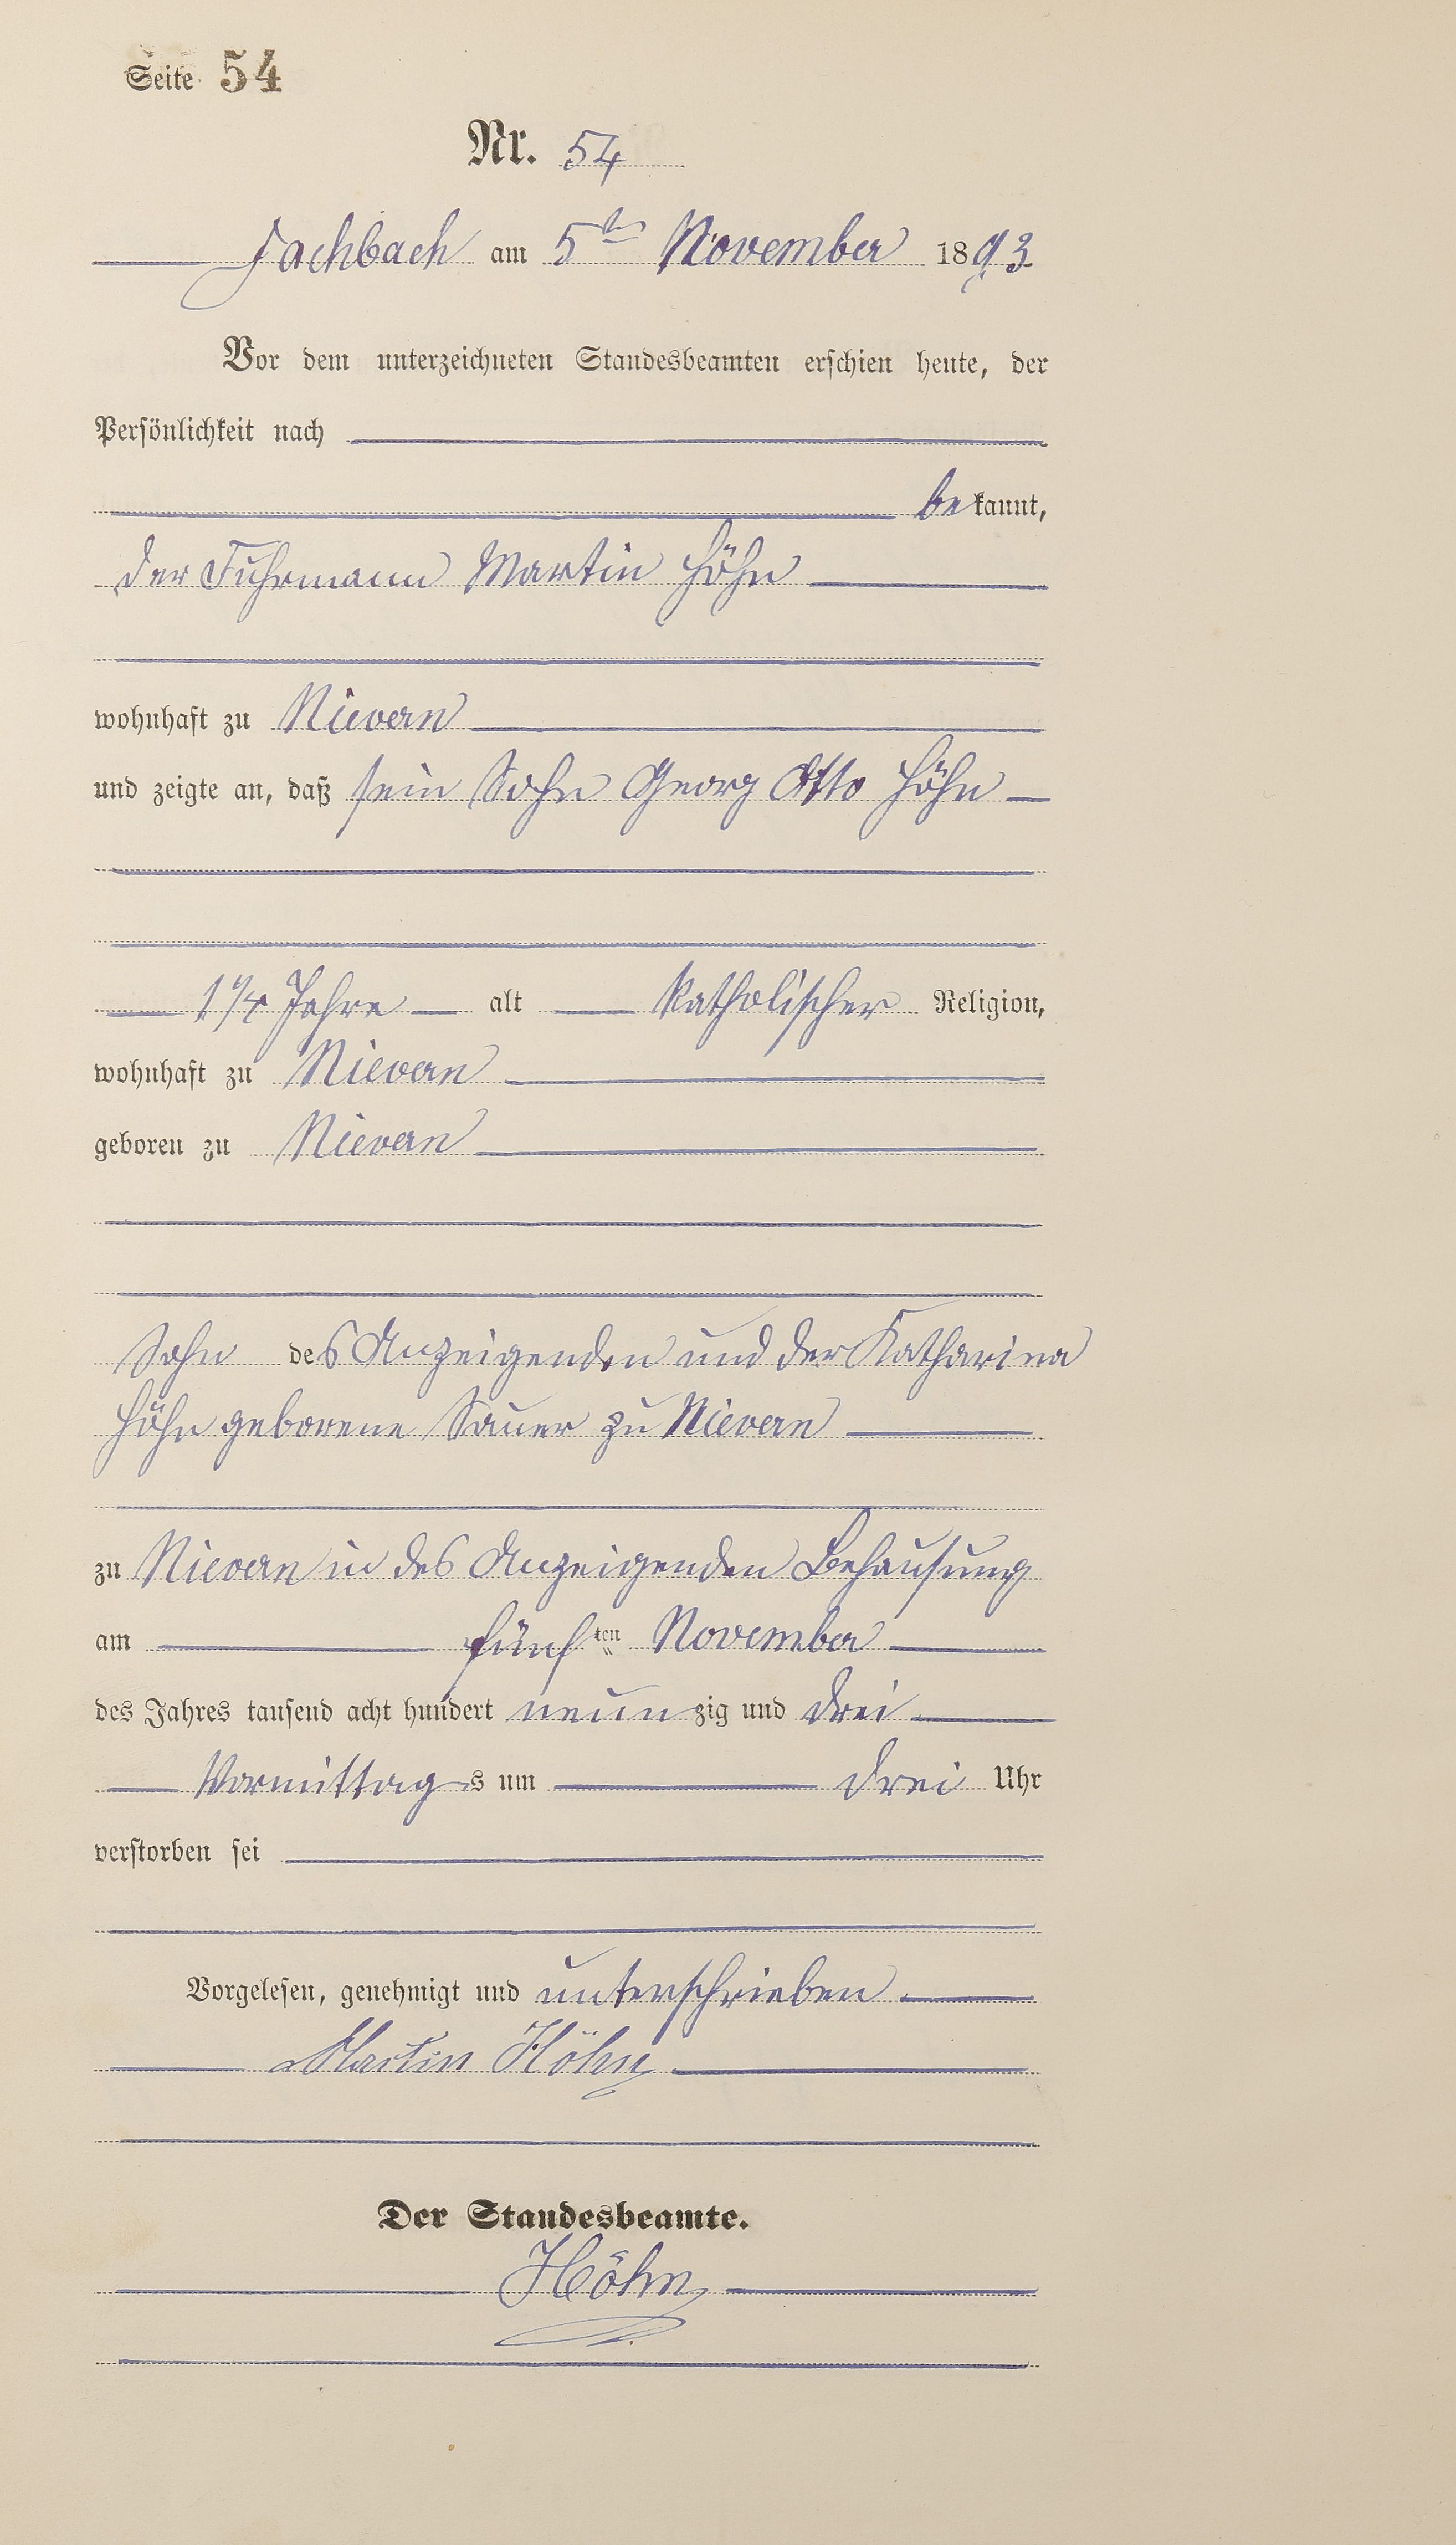 Seite 54
Nr. 54
Fachbach am 5ten November 1893
Vor dem unterzeichneten Standesbeamten erschien heute, der
Persönlichkeit nach
bekannt,
der Fuhrmann Martin Höhn
wohnhaft zu Nievern
und zeigte an, daß sein Sohn Georg Otto Höhn
1 1/4 Jahre alt katholischer Religion,
wohnhaft zu Nievern
geboren zu Nievern
Sohn des Anzeigenden und der Katharina
Höhn geborene Sauer zu Nievern
zu Nievern in des Anzeigenden Behausung
am fünften November
des Jahres tausend acht hundert neunzig und drei
Vormittags um drei Uhr
verstorben sei
Vorgelesen, genehmigt und unterschrieben
Martin Höhn
Der Standesbeamte.
Höhn